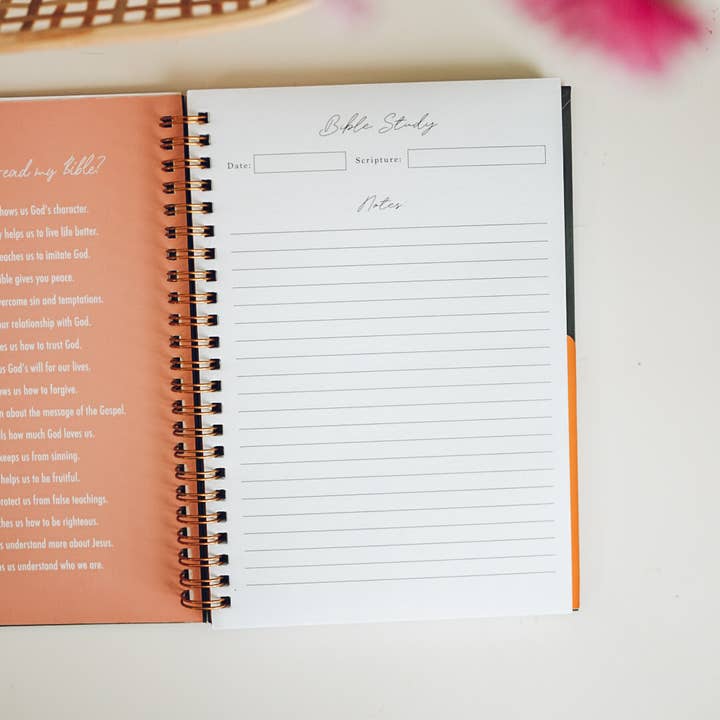 read my Bible?
hows us God's character.
y helps us to live life better.
eaches us to imitate God.
ible gives you peace.
vercome sin and temptations.
our relationship with God.
es us how to trust God.
us God's will for our lives.
ows us how to forgive.
n about the message of the Gospel.
lls how much God loves us.
keeps us from sinning.
helps us to be fruitful.
protect us from false teachings.
ches us how to be righteous.
s understand more about Jesus.
ps us understand who we are.
Bible Study
Date: Scripture:
Notes